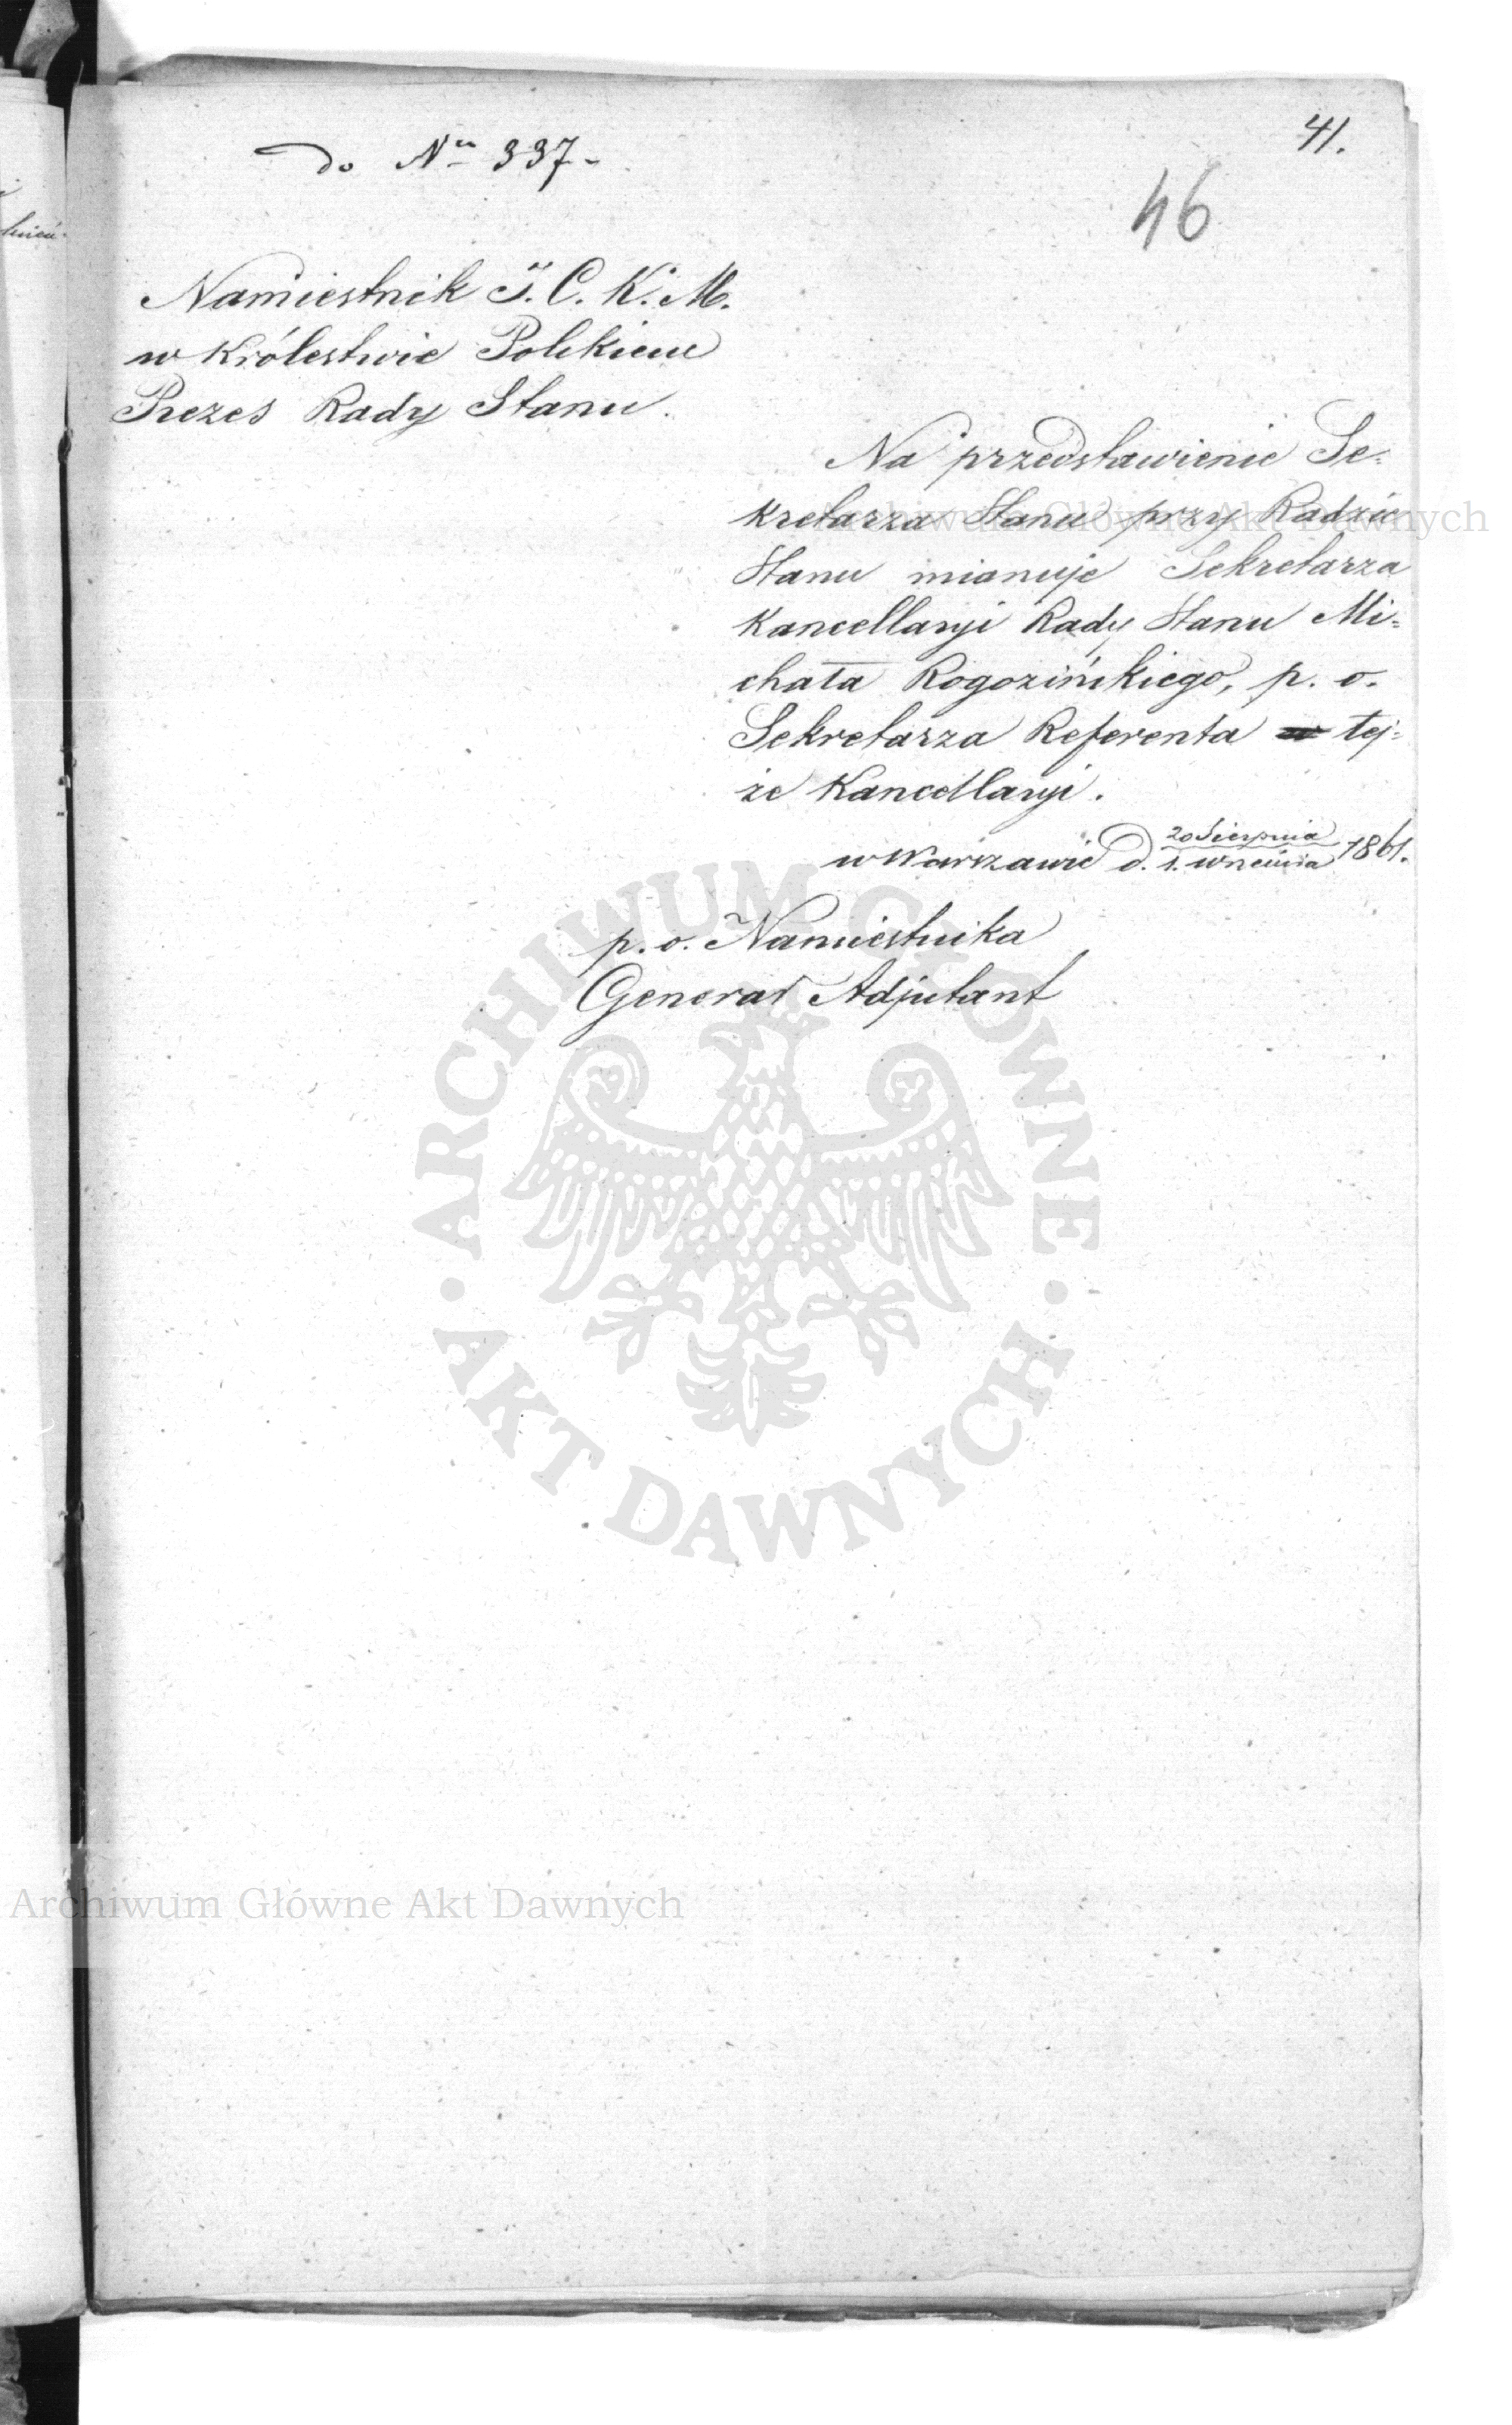 41.
do Nru 337-
46
Namiestnik J. C. K. M.
w Królestwie Polskiem
Prezes Rady Stanu.
Na przedstawienie Se-
kretarza Stanu przy Radzie
Stanu mianuje Sekretarza
Kancellaryi Rady Stanu Mi=
chała Rogozińskiego, p. o.
Sekretarza Referenta tej=
że Kancellaryi.
w Warszawie d. 20 Sierpnia / 1. Września 1861.
p. o. Namiestnika
Generał Adjutant
Archiwum Główne Akt Dawnych
ARCHIWUM GŁÓWNE
AKT DAWNYCH
Archiwum Główne Akt Dawnych